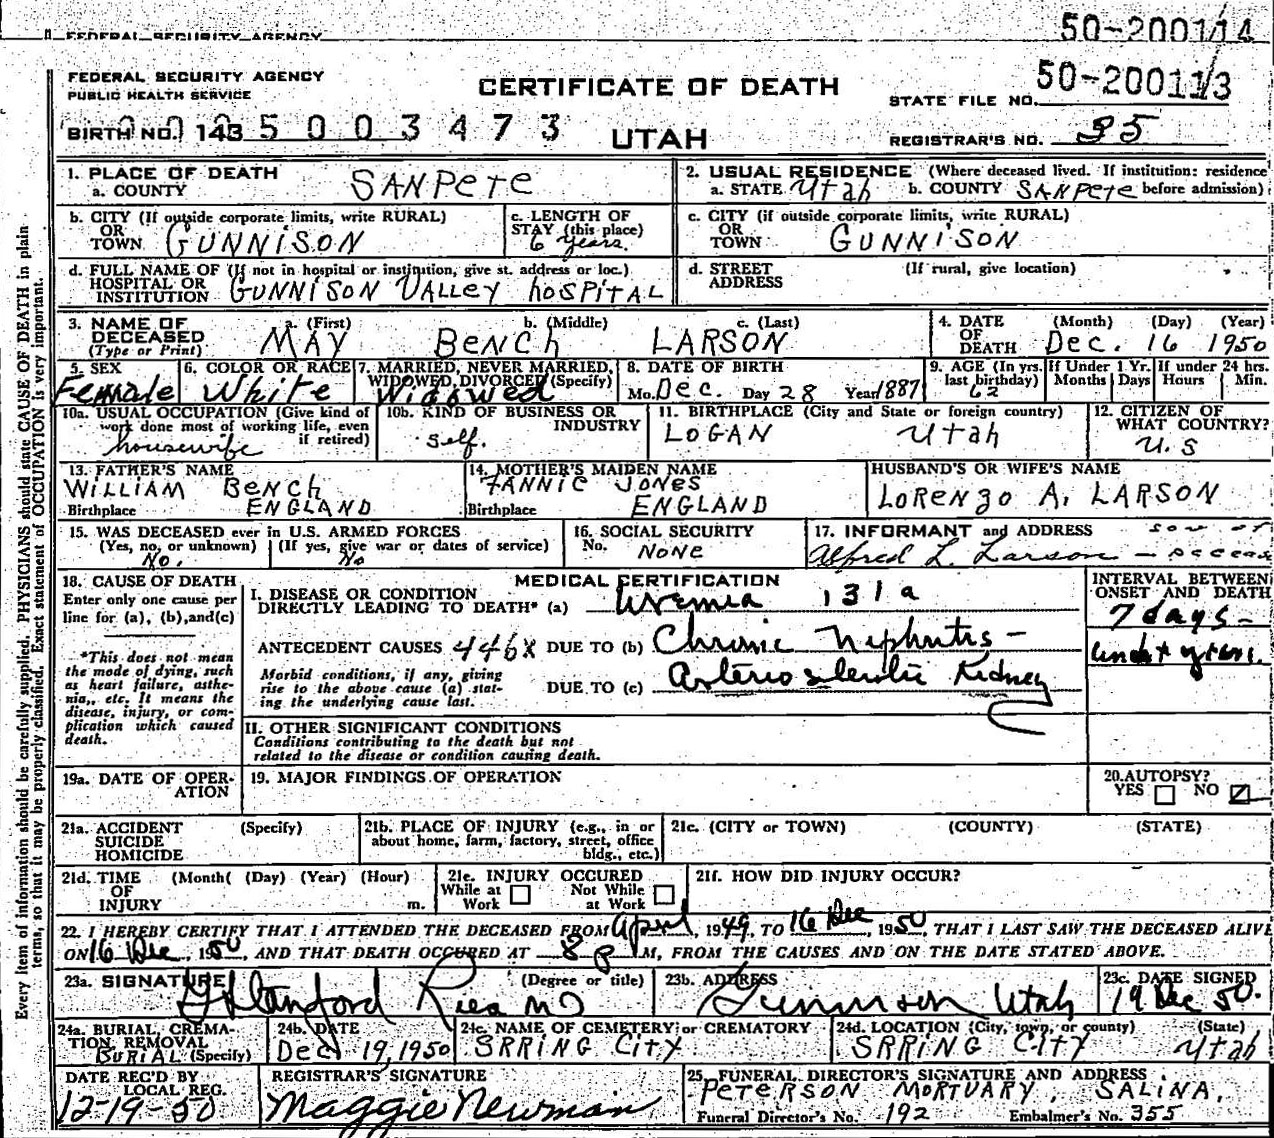 50-2001114
FEDERAL SECURITY AGENCY
FEDERAL SECURITY AGENCY
PUBLIC HEALTH SERVICE
CERTIFICATE OF DEATH
STATE FILE NO. 50-2001113
BIRTH NO. 143 5003473
UTAH
REGISTRAR'S NO. 35
1. PLACE OF DEATH
a. COUNTY SANPETE
2. USUAL RESIDENCE (Where deceased lived. If institution: residence
a. STATE Utah b. COUNTY SANPETE before admission)
b. CITY (If outside corporate limits, write RURAL)
OR
TOWN GUNNISON
c. LENGTH OF
STAY (this place)
6 years.
c. CITY (if outside corporate limits, write RURAL)
OR
TOWN GUNNISON
d. FULL NAME OF (If not in hospital or institution, give st. address or loc.)
HOSPITAL OR
INSTITUTION GUNNISON VALLEY HOSPITAL
d. STREET (If rural, give location)
ADDRESS
3. NAME OF
DECEASED
(Type or Print)
a. (First) b. (Middle) c. (Last)
MAY BENCH LARSON
4. DATE (Month) (Day) (Year)
OF
DEATH Dec. 16 1950
5. SEX
Female
6. COLOR OR RACE
White
7. MARRIED, NEVER MARRIED,
WIDOWED, DIVORCED (Specify)
Widowed
8. DATE OF BIRTH
Mo. Dec. Day 28 Year 1887
9. AGE (In yrs.
last birthday)
62
If Under 1 Yr.
Months Days
If under 24 hrs.
Hours Min.
10a. USUAL OCCUPATION (Give kind of
work done most of working life, even
if retired)
housewife
10b. KIND OF BUSINESS OR
INDUSTRY
Self.
11. BIRTHPLACE (City and State or foreign country)
LOGAN Utah
12. CITIZEN OF
WHAT COUNTRY?
U.S
13. FATHER'S NAME
WILLIAM BENCH
Birthplace ENGLAND
14. MOTHER'S MAIDEN NAME
FANNIE JONES
Birthplace ENGLAND
HUSBAND'S OR WIFE'S NAME
LORENZO A. LARSON
15. WAS DECEASED ever in U.S. ARMED FORCES
(Yes, no, or unknown) (If yes, give war or dates of service)
No. No
16. SOCIAL SECURITY
No. NONE
17. INFORMANT and ADDRESS son of
Alfred L. Larson - deceas
18. CAUSE OF DEATH
Enter only one cause per
line for (a), (b), and (c)
*This does not mean
the mode of dying, such
as heart failure, asthe-
nia, etc. It means the
disease, injury, or com-
plication which caused
death.
MEDICAL CERTIFICATION
I. DISEASE OR CONDITION
DIRECTLY LEADING TO DEATH* (a) Uremia 131a
ANTECEDENT CAUSES 446x DUE TO (b) Chronic Nephritis -
Morbid conditions, if any, giving
rise to the above cause (a) stat-
ing the underlying cause last.
DUE TO (c) Arterio sclerotic Kidney
INTERVAL BETWEEN
ONSET AND DEATH
7 days -
II. OTHER SIGNIFICANT CONDITIONS
Conditions contributing to the death but not
related to the disease or condition causing death.
19a. DATE OF OPER-
ATION
19. MAJOR FINDINGS OF OPERATION
20. AUTOPSY?
YES NO
21a. ACCIDENT (Specify)
SUICIDE
HOMICIDE
21b. PLACE OF INJURY (e.g., in or
about home, farm, factory, street, office
bldg., etc.)
21c. (CITY or TOWN) (COUNTY) (STATE)
21d. TIME (Month( (Day) (Year) (Hour)
OF
INJURY m.
21e. INJURY OCCURED
While at Work Not While at Work
21f. HOW DID INJURY OCCUR?
22. I HEREBY CERTIFY THAT I ATTENDED THE DECEASED FROM April, 1949, TO 16 Dec 1950, THAT I LAST SAW THE DECEASED ALIVE
ON 16 Dec, 1950, AND THAT DEATH OCCURED AT 8 P M, FROM THE CAUSES AND ON THE DATE STATED ABOVE.
23a. SIGNATURE (Degree or title)
G Stanford Rees MD
23b. ADDRESS
Gunnison Utah
23c. DATE SIGNED
19 Dec 50.
24a. BURIAL, CREMA-
TION, REMOVAL
BURIAL (Specify)
24b. DATE
Dec 19, 1950
24c. NAME OF CEMETERY or CREMATORY
SRRING CITY
24d. LOCATION (City, town, or county) (State)
SRRING CITY Utah
DATE REC'D BY
LOCAL REG.
12-19-50
REGISTRAR'S SIGNATURE
Maggie Newman
25. FUNERAL DIRECTOR'S SIGNATURE AND ADDRESS
PETERSON MORTUARY, SALINA.
Funeral Director's No. 192 Embalmer's No. 355
Every item of information should be carefully supplied. PHYSICIANS should state CAUSE OF DEATH in plain
terms, so that it may be properly classified. Exact statement of OCCUPATION is very important.